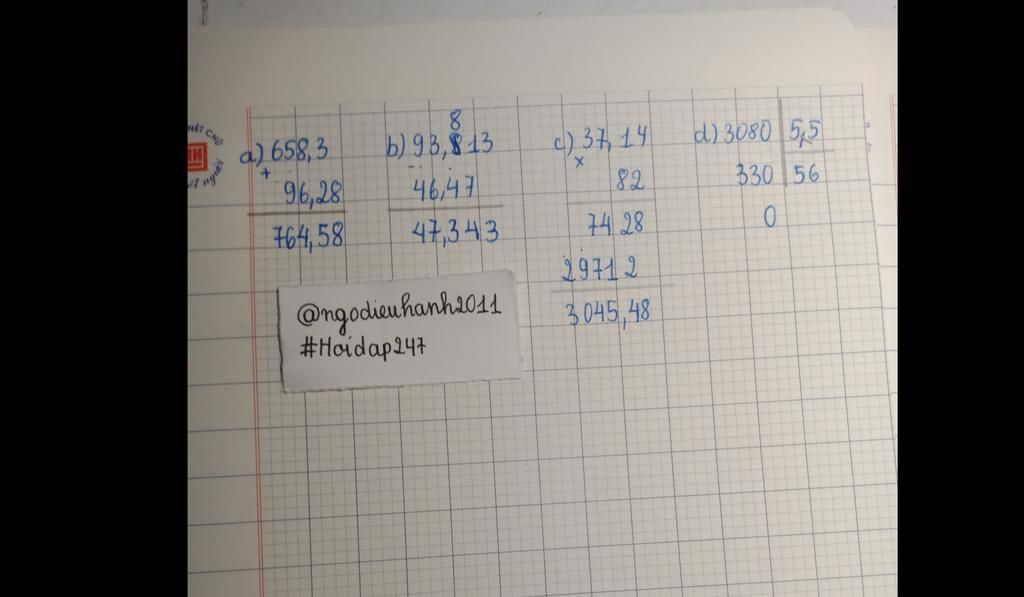 a) 658,3
+
96,28
764,58
8
b) 93,813
-
46,47
47,343
c) 37,14
x
82
74 28
2971 2
3045,48
d) 3080 5,5
330 56
0
@ngodieuhanh2011
#Hoidap247